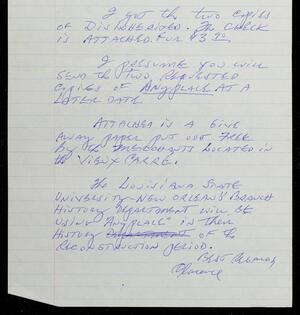 I got the two copies
of Disinherited. The check
is attached for $3.70

I presume you will
send the two requested
copies of Anyplace at a
later date.

Attached is a give
away paper put out free
by the merchants located in
the Vieux Carre.

The Louisiana State
University-New Orleans Branch
History Department will be
using "Anyplace" in their
History Department of the
Reconstruction period.
Best Regards
Clarence